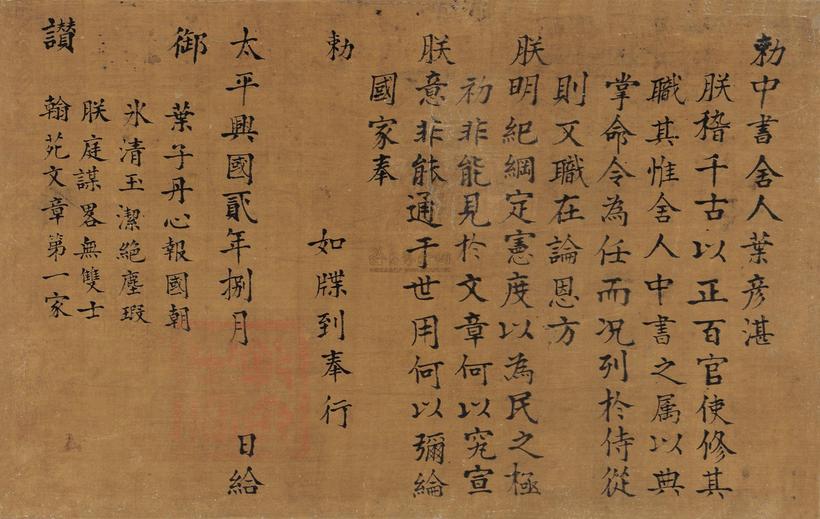 勅中書舍人葉彦湛
朕稽千古以正百官使修其
職其惟舍人中書之属以典
掌命令為任而况列於侍從
則又職在論恩方
朕明紀綱定憲度以為民之極
初非能見於文章何以究宣
朕意非能通于世用何以彌綸
國家奉
勅
如牒到奉行
太平興國貳年捌月 日給
御
讃
葉子丹心報國朝
氷清玉潔絶塵瑕
朕庭謀畧無雙士
翰苑文章第一家